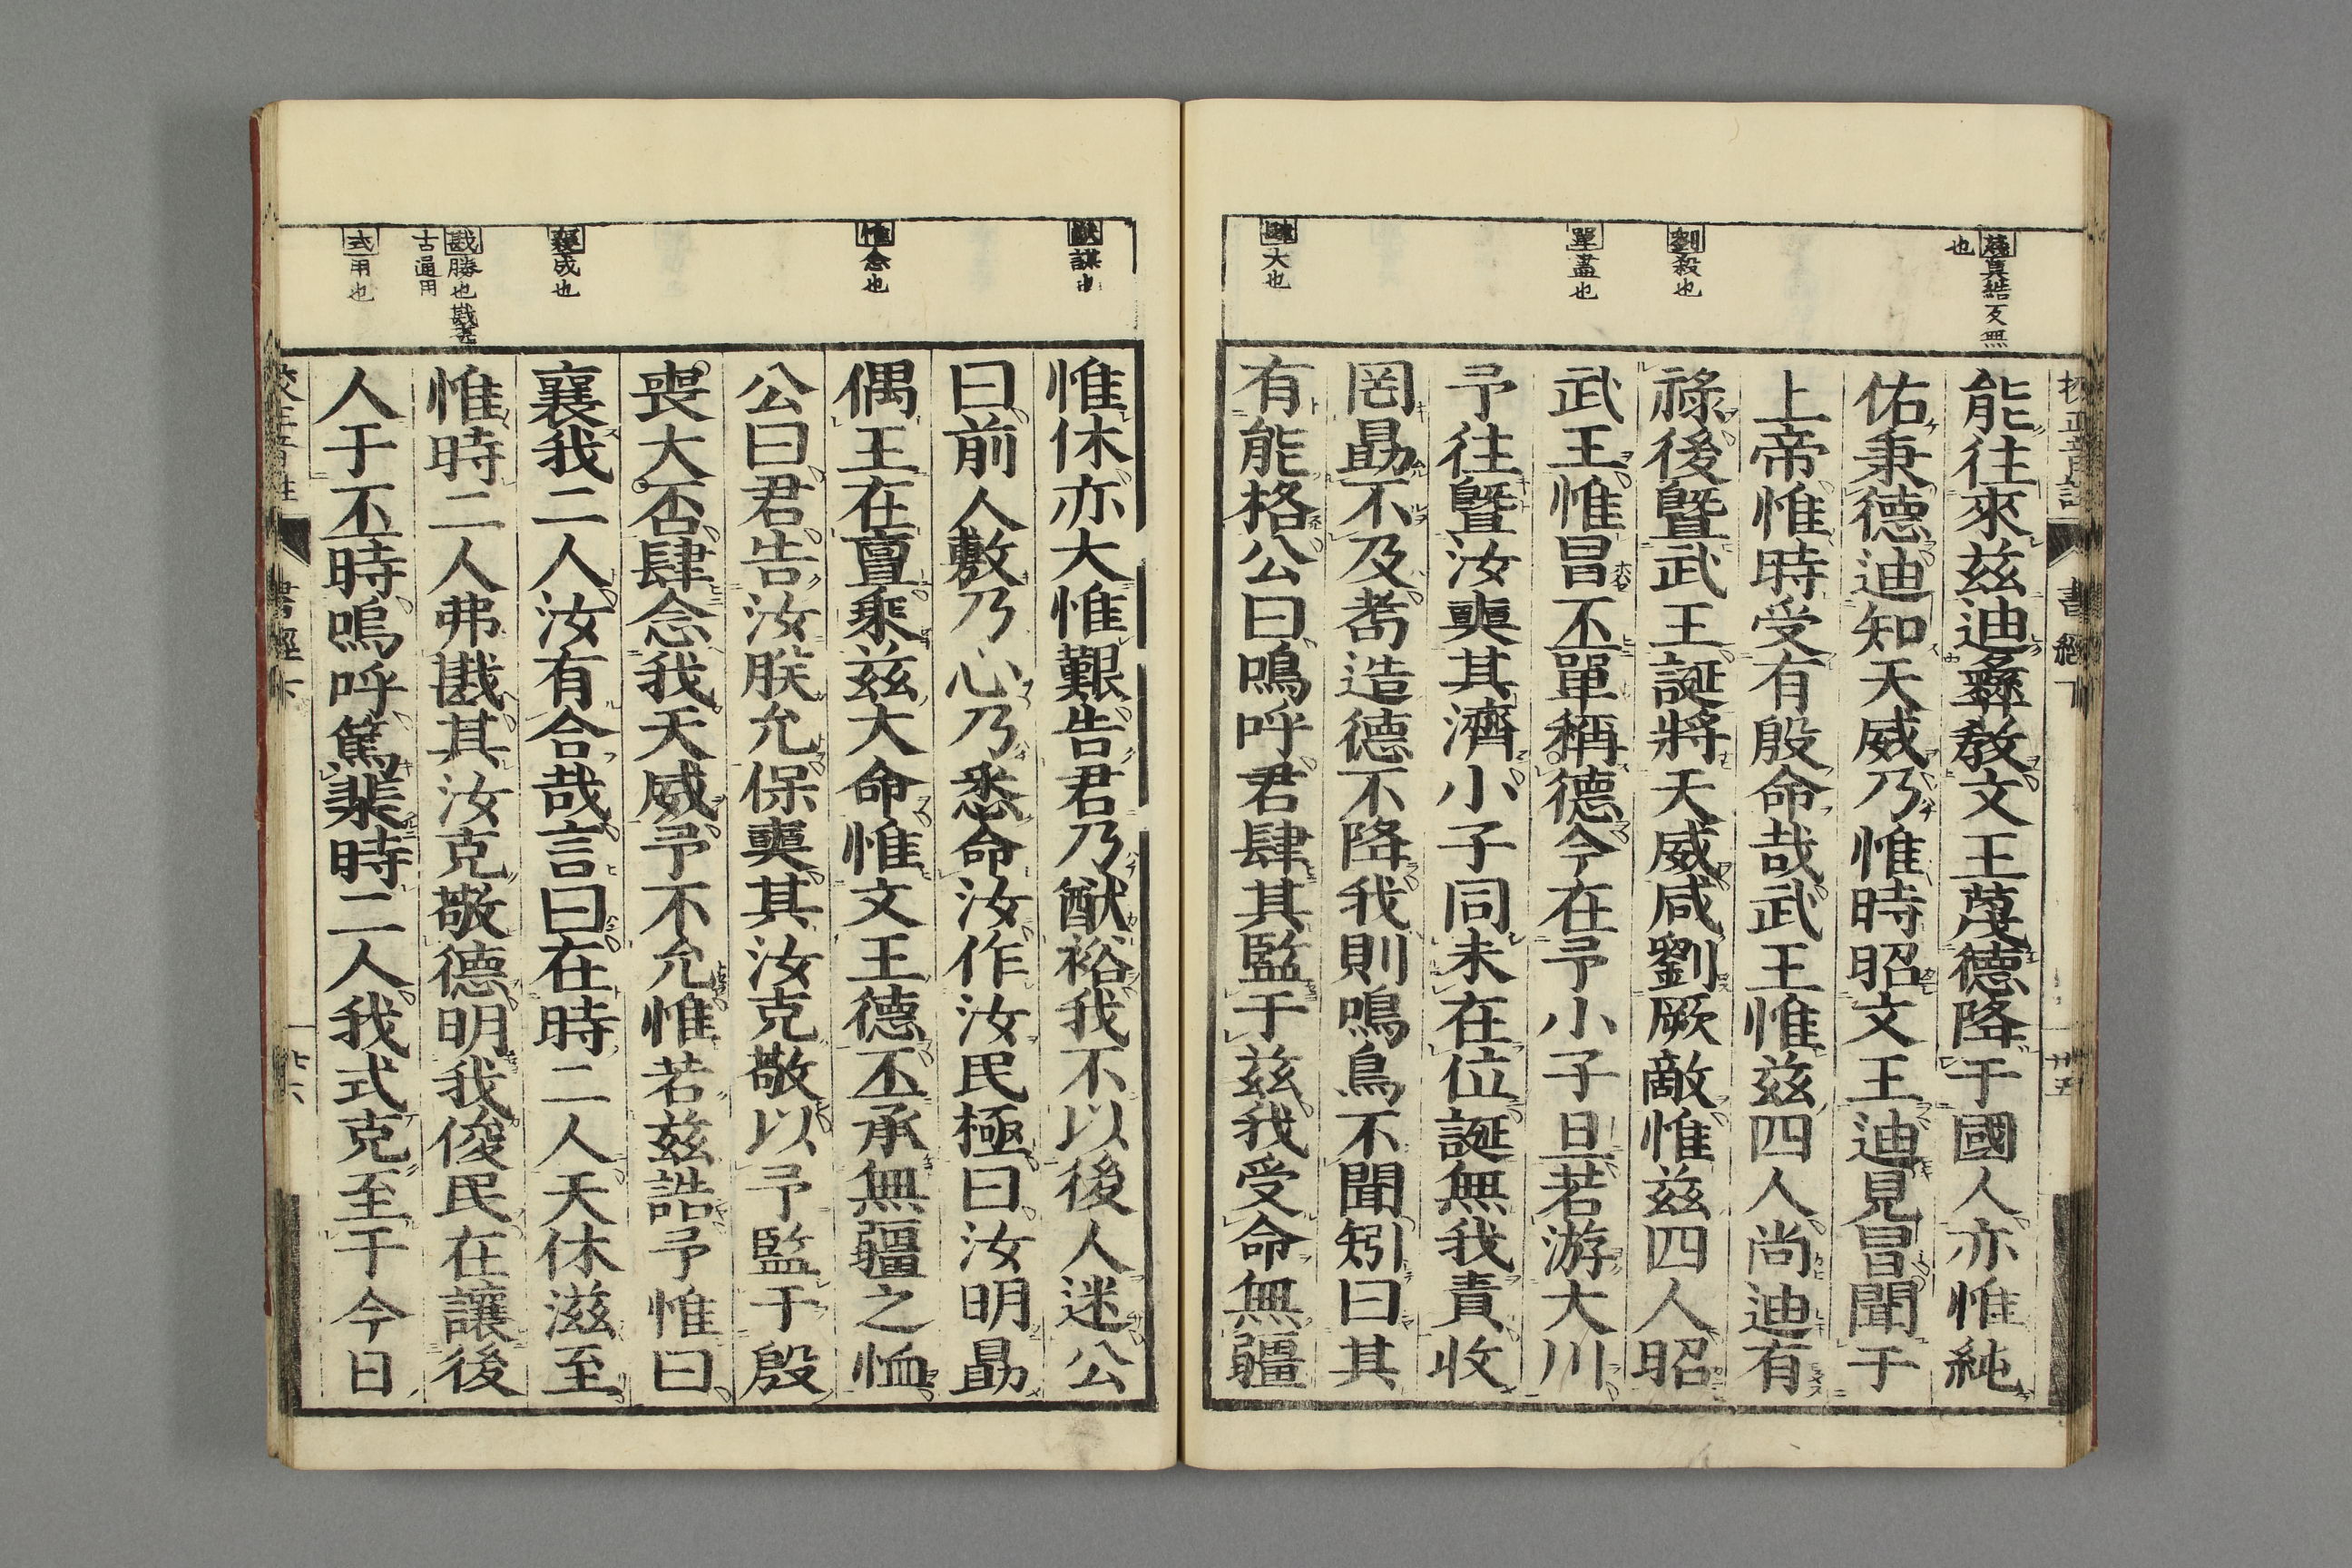 蔑莫結反無
也
劉殺也
單盡也
肆大也
能往來茲迪彝教文王蔑德降于國人亦惟純
佑秉德迪知天威乃惟時昭文王迪見冒聞于
上帝惟時受有殷命哉武王惟茲四人尚迪有
祿後曁武王誕將天威咸劉厥敵惟茲四人昭
武王惟冒丕單稱德今在予小子旦若游大川
予往曁汝奭其濟小子同未在位誕無我責收
罔勗不及耉造德不降我則鳴鳥不聞矧曰其
有能格公曰嗚呼君肆其監于茲我受命無疆
書經下
廿五
猷謀也
惟念也
襄成也
戡勝也戡堪
古通用
式用也
惟休亦大惟艱告君乃猷裕我不以後人迷公
曰前人敷乃心乃悉命汝作汝民極曰汝明勗
偶王在亶乘茲大命惟文王德丕承無疆之恤
公曰君告汝朕允保奭其汝克敬以予監于殷
喪大否肆念我天威予不允惟若茲誥予惟曰
襄我二人汝有合哉言曰在時二人天休滋至
惟時二人弗戡其汝克敬德明我俊民在讓後
人于丕時嗚呼篤棐時二人我式克至于今日